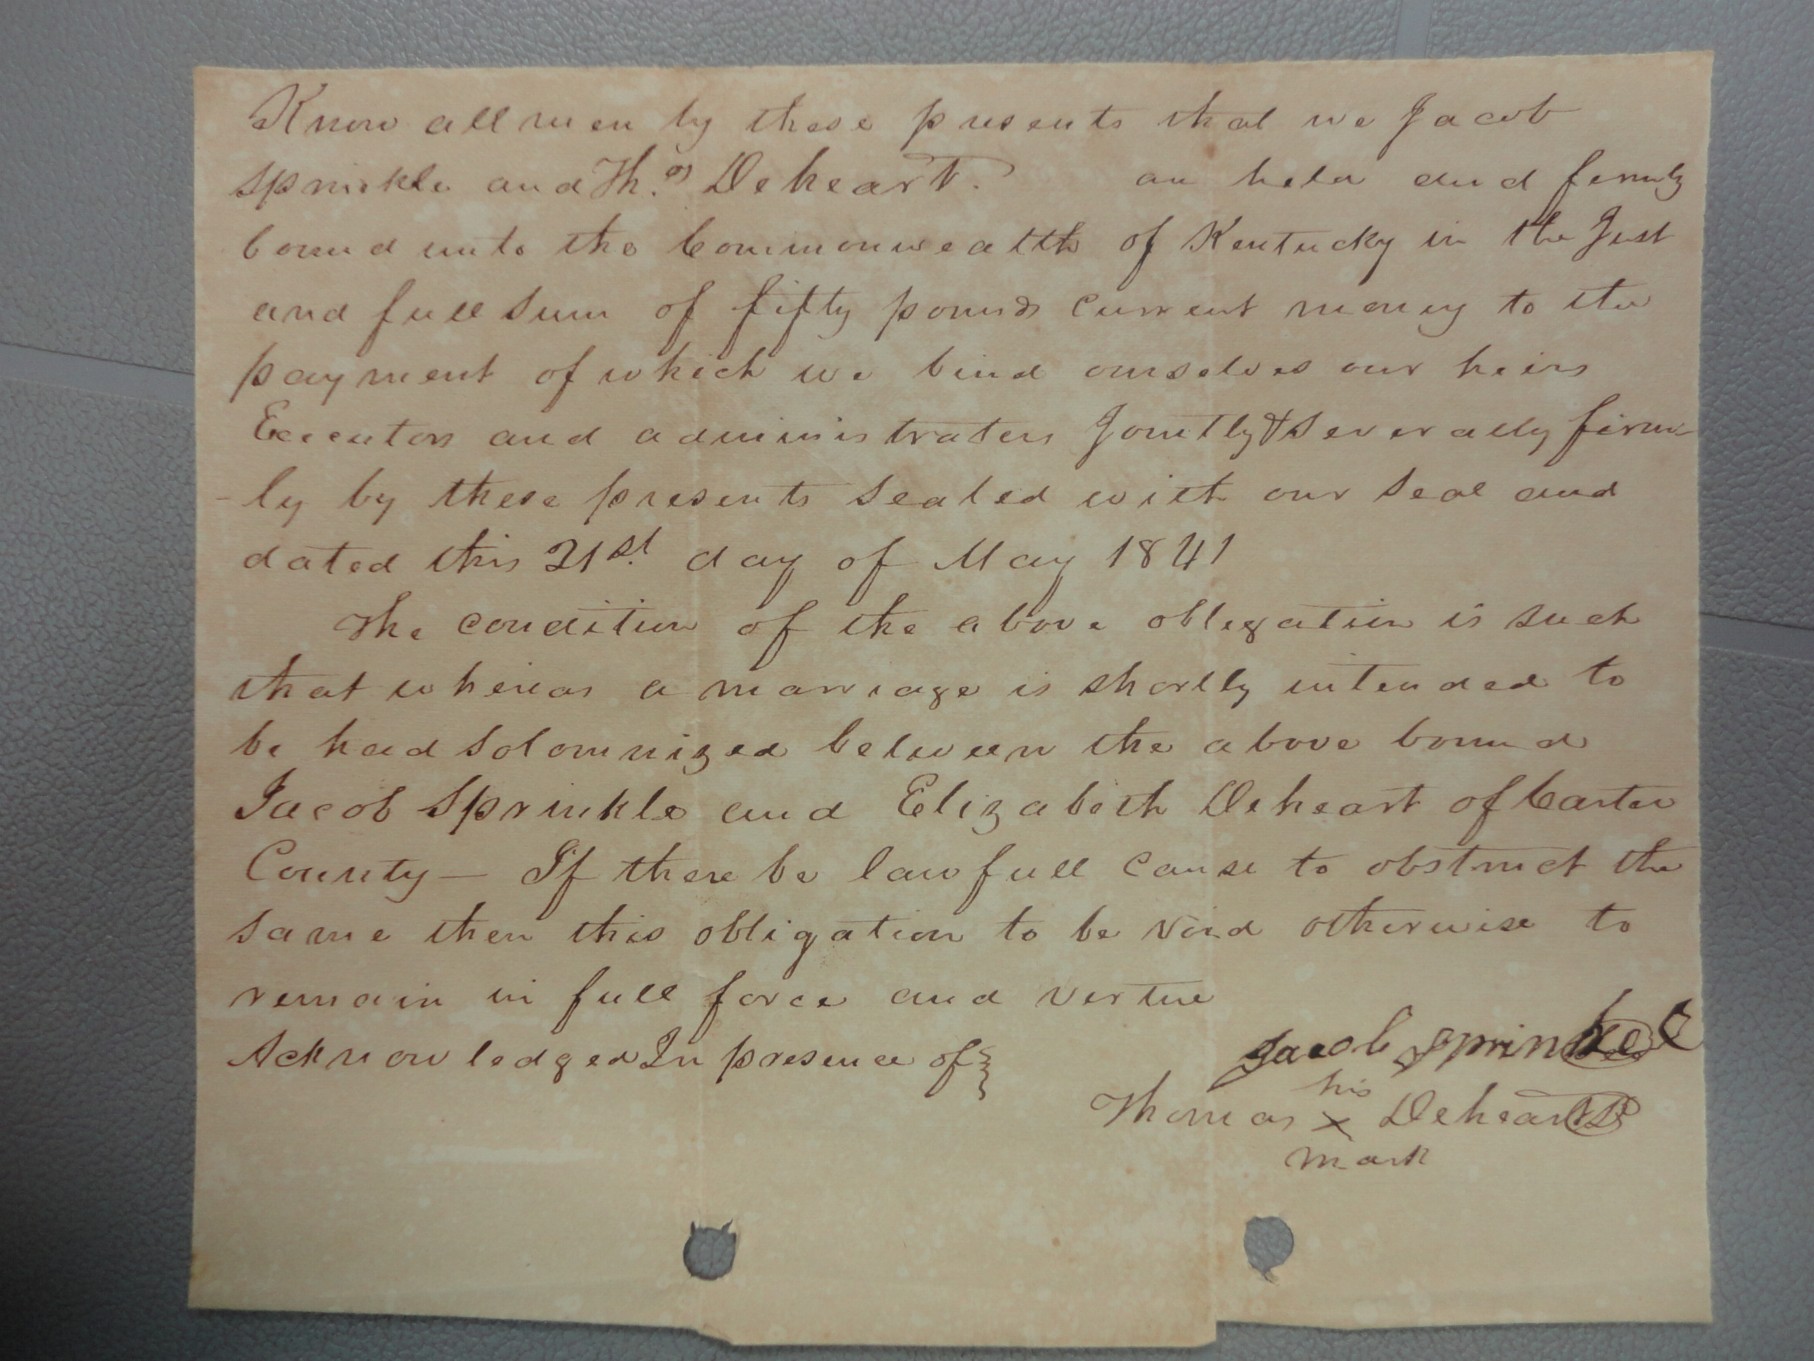 Know all men by these presents that we Jacob
Sprinkle and Thos. Deheart. are held and firmly
bound unto the Commonwealth of Kentucky in the Just
and full sum of fifty pounds current money to the
payment of which we bind ourselves our heirs
Executors and administrators Jointly & severally firm-
-ly by these presents sealed with our seal and
dated this 21st. day of May 1841
The condition of the above obligation is such
that whereas a marriage is shortly intended to
be had solomnized between the above bound
Jacob Sprinkle and Elizabeth Deheart of Carter
County — If there be lawfull cause to obstruct the
same then this obligation to be void otherwise to
remain in full force and vertue
Acknowledged In presence of
Jacob Sprinkel
his
Thomas X Deheart
mark